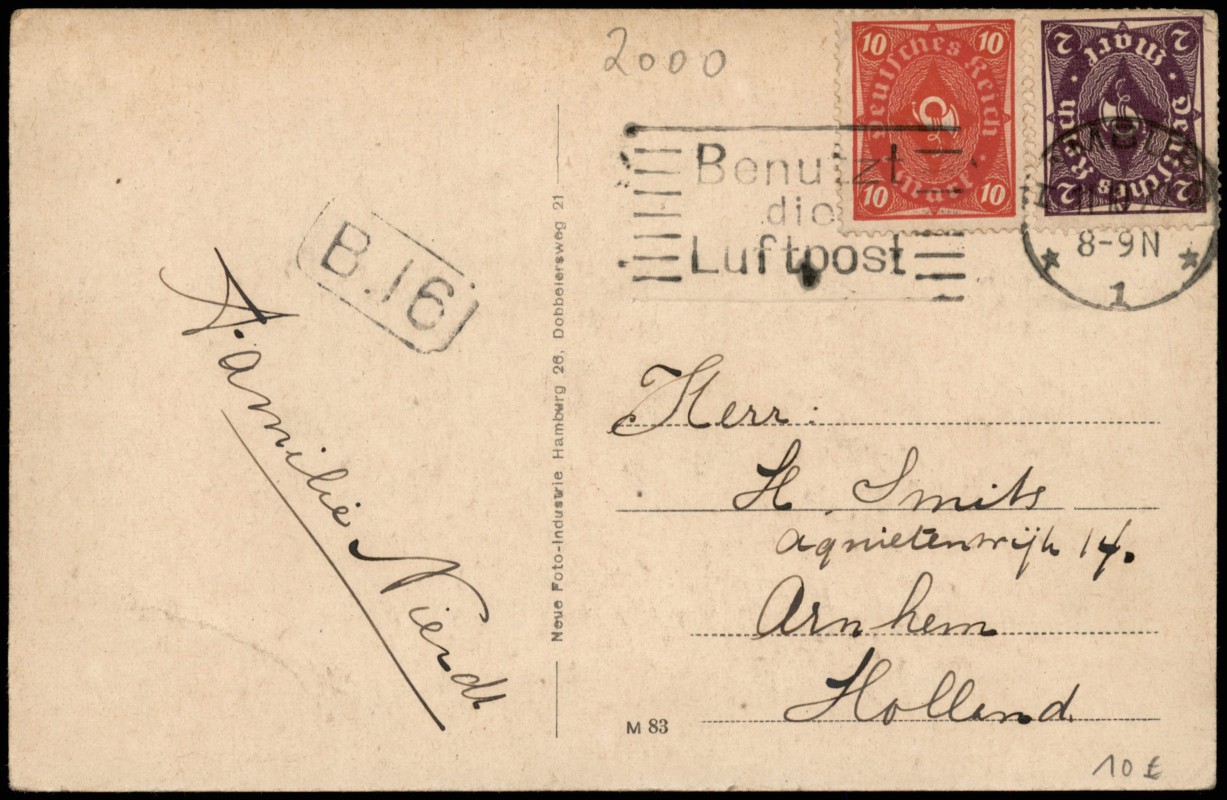 2000
10 10
Deutsches Reich
10 Mark 10
2 2
Deutsches Reich
2 Mark 2
Benutzt
die
Luftpost
8-9 N
* 1 *
B.16
Familie Nierdt
Neue Foto-Industrie Hamburg 26, Dobbelersweg 21
Herr:
H. Smits
Agnietenwijk 14.
Arnhem
Holland.
M 83
10 £